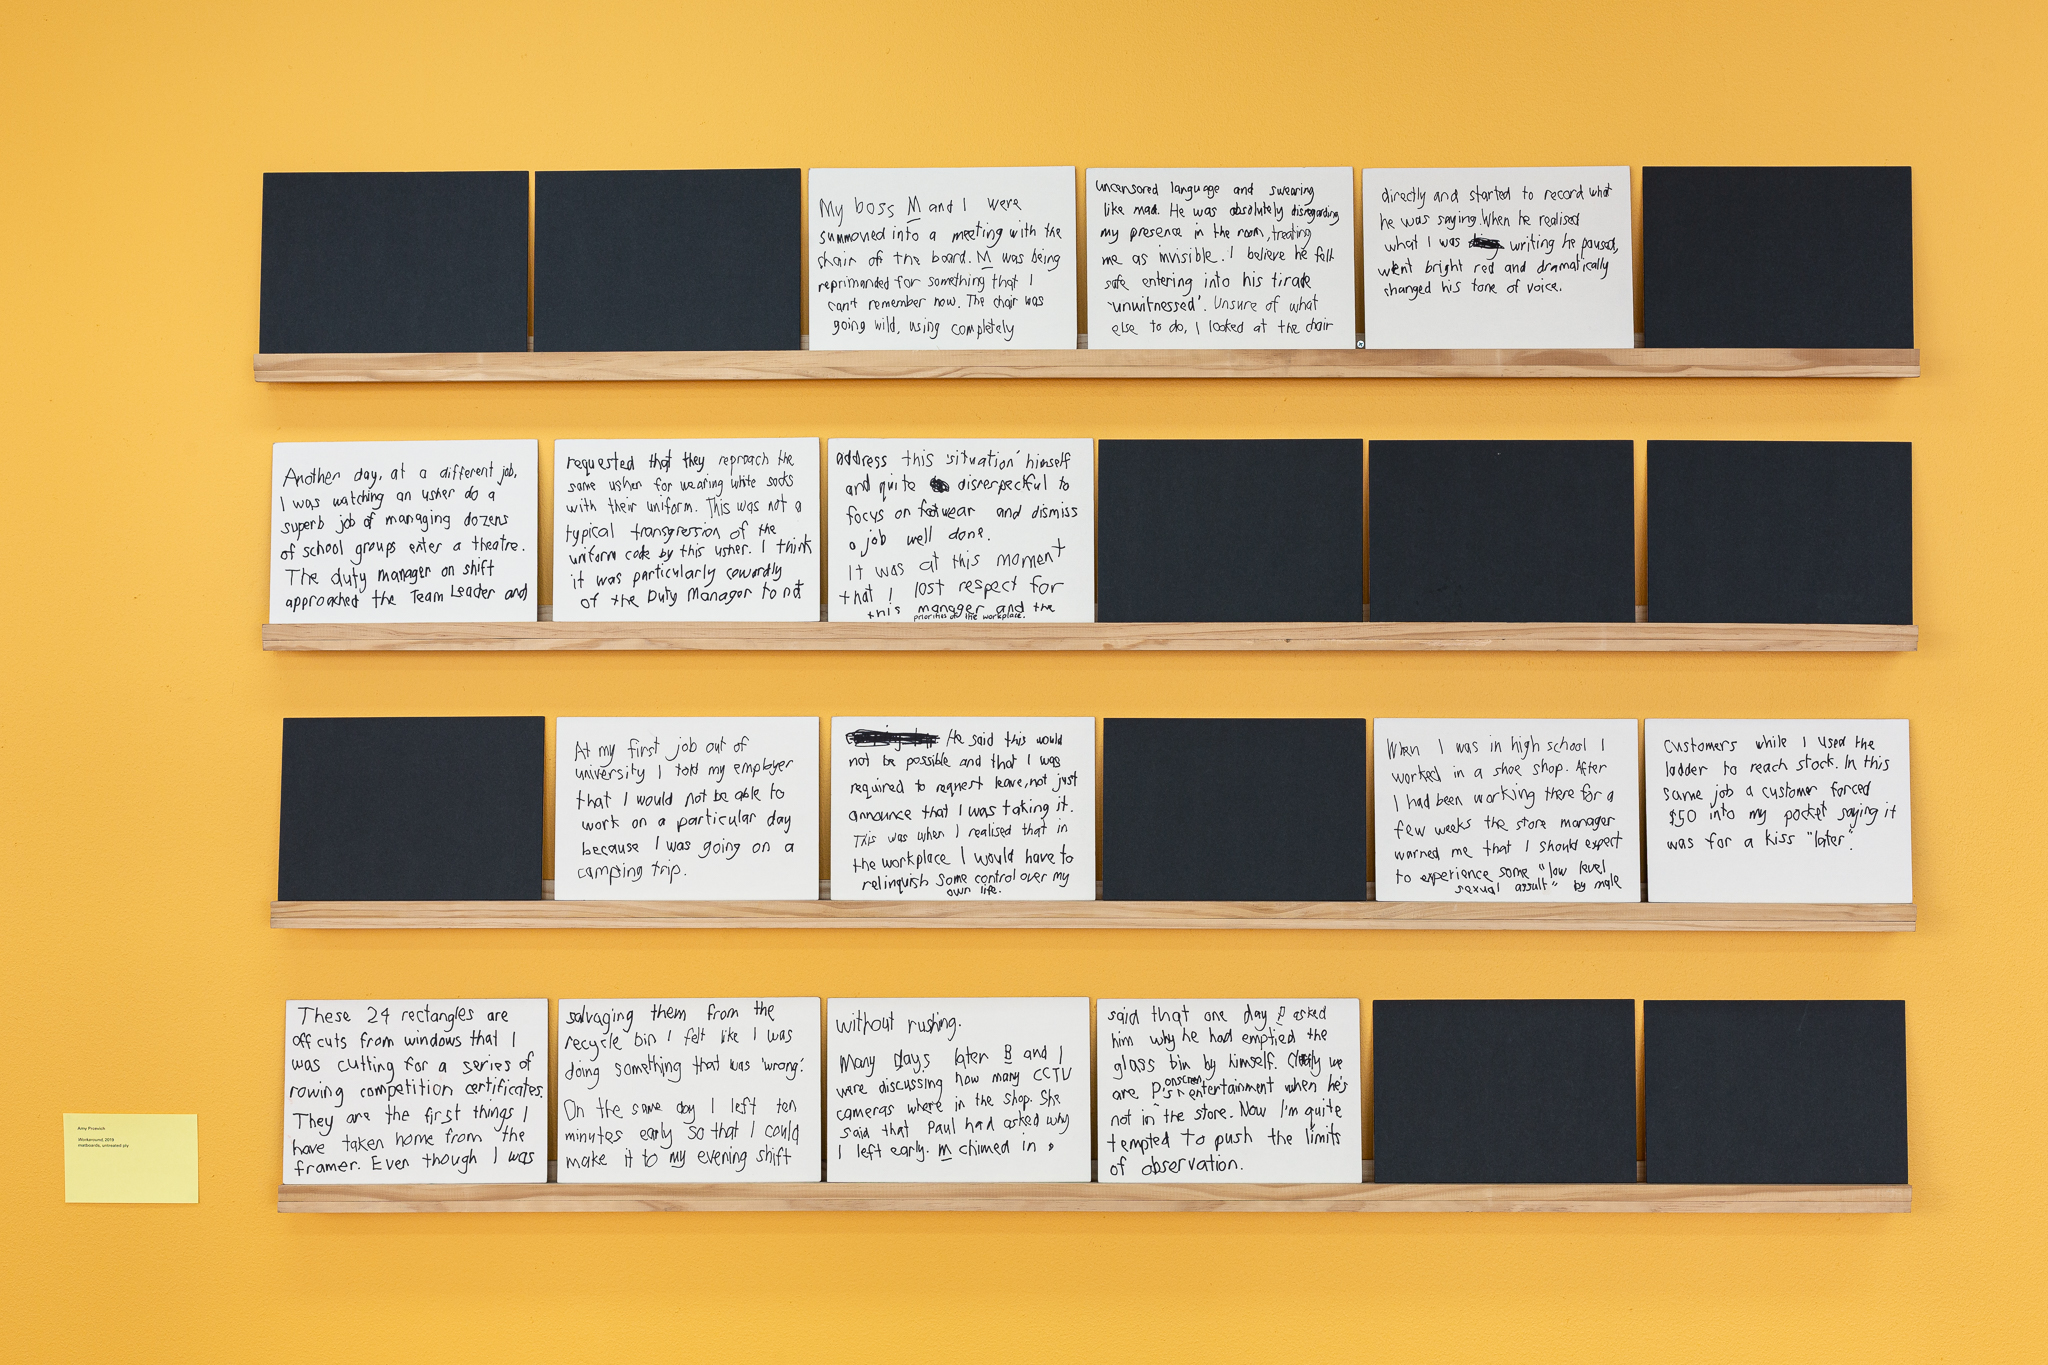 My boss M and I were
summoned into a meeting with the
chair of the board. M was being
reprimanded for something that I
can't remember now. The chair was
going wild, using completely
uncensored language and swearing
like mad. He was absolutely disregarding
my presence in the room, treating
me as invisible. I believe he felt
safe entering into his tirade
'unwitnessed'. Unsure of what
else to do, I looked at the chair
directly and started to record what
he was saying. When he realised
what I was writing he paused,
went bright red and dramatically
changed his tone of voice.
Another day, at a different job,
I was watching an usher do a
superb job of managing dozens
of school groups enter a theatre.
The duty manager on shift
approached the Team Leader and
requested that they reproach the
same usher for wearing white socks
with their uniform. This was not a
typical transgression of the
uniform code by this usher. I think
it was particularly cowardly
of the Duty Manager to not
address this 'situation' himself
and quite disrespectful to
focus on footwear and dismiss
a job well done.
It was at this moment
that I lost respect for
this manager and the
priorities of the workplace.
At my first job out of
university I told my employer
that I would not be able to
work on a particular day
because I was going on a
camping trip.
He said this would
not be possible and that I was
required to request leave, not just
announce that I was taking it.
This was when I realised that in
the workplace I would have to
relinquish some control over my
own life.
When I was in high school I
worked in a shoe shop. After
I had been working there for a
few weeks the store manager
warned me that I should expect
to experience some "low level
sexual assult" by male
customers while I used the
ladder to reach stock. In this
same job a customer forced
$50 into my pocket saying it
was for a kiss "later".
These 24 rectangles are
off cuts from windows that I
was cutting for a series of
rowing competition certificates.
They are the first things I
have taken home from the
framer. Even though I was
salvaging them from the
recycle bin I felt like I was
doing something that was 'wrong'.
On the same day I left ten
minutes early so that I could
make it to my evening shift
without rushing.
Many days later B and I
were discussing how many CCTV
cameras where in the shop. She
said that Paul had asked why
I left early. M chimed in &
said that one day P asked
him why he had emptied the
glass bin by himself. Clearly we
are P's onscreen entertainment when he's
not in the store. Now I'm quite
tempted to push the limits
of observation.
Workaround, 2018
matboards, untreated ply